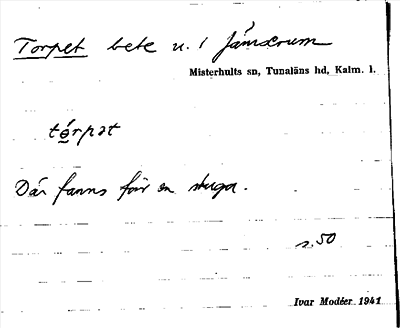 Torpet bete u. 1 Jämserum
Misterhults sn, Tunaläns hd, Kalm. l.
tórpət
Där fanns förr en stuga.
s. 50
Ivar Modéer 1941